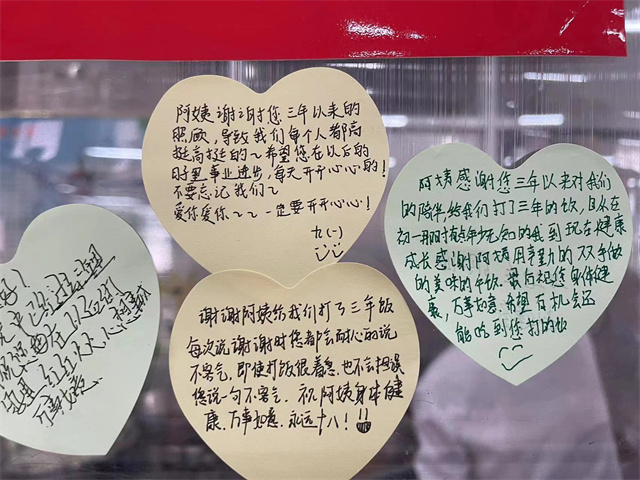 阿姨谢谢您三年以来的
照顾，导致我们每个人都高
挺高挺的～希望您在以后的
日子里事业进步，每天开开心心的！
不要忘记我们～
爱你爱你～～一定要开开心心！
九(一)
谢谢阿姨给我们打了三年饭
每次说谢谢时您都会耐心的说
不客气，即使打饭很着急，也不会担误
您说一句不客气。祝阿姨身体健
康，万事如意，永远十八！
阿姨感谢您三年以来对我们
的陪伴，给我们打了三年的饭，自从在
初一那时有点年少无知的我到现在健康
成长感谢阿姨用辛勤的双手做
的美味的午饭。最后祝您身体健
康，万事如意，希望有机会还
能吃到您打的饭
万事如意